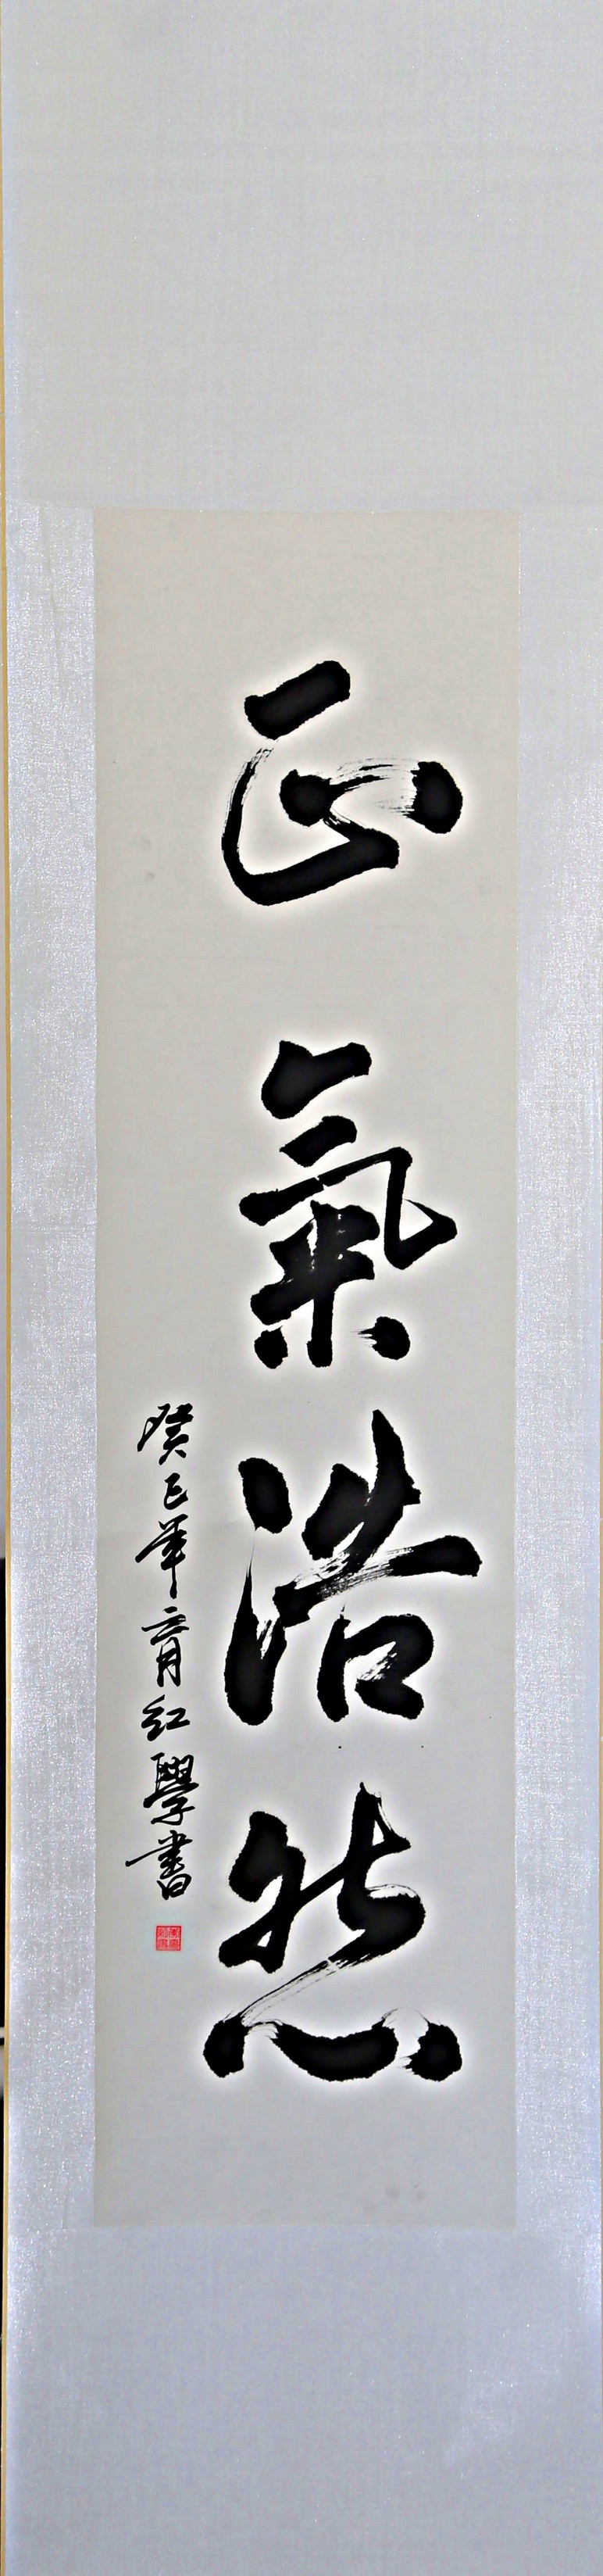 正氣浩然
癸巳年育紅學書